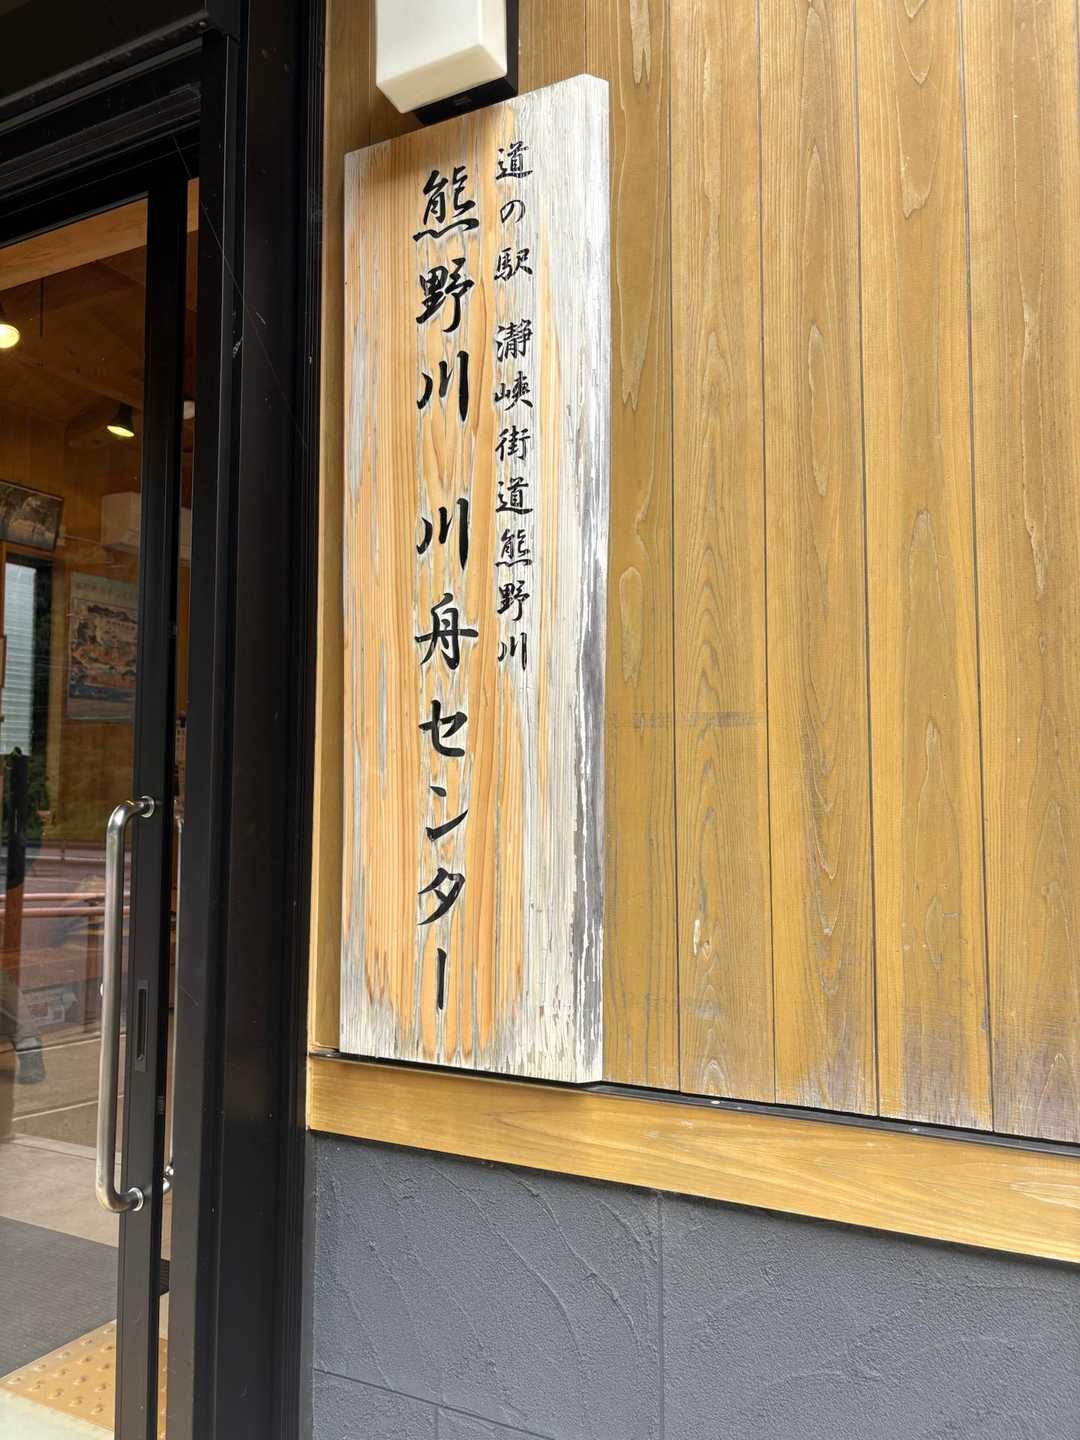 道の駅 瀞峡街道熊野川
熊野川川舟センター